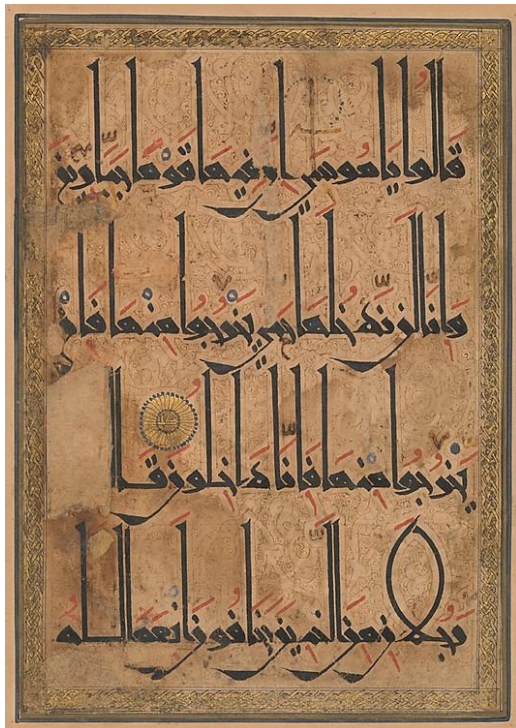 قَالُوا يَا مُوسَى إِنَّ فِيهَا قَوْمًا جَبَّارِينَ
وَإِنَّا لَنْ نَدْخُلَهَا حَتَّى يَخْرُجُوا مِنْهَا فَإِنْ
يَخْرُجُوا مِنْهَا فَإِنَّا دَاخِلُونَ قَا
لَ رَجُلَانِ مِنَ الَّذِينَ يَخَافُونَ أَنْعَمَ اللَّهُ